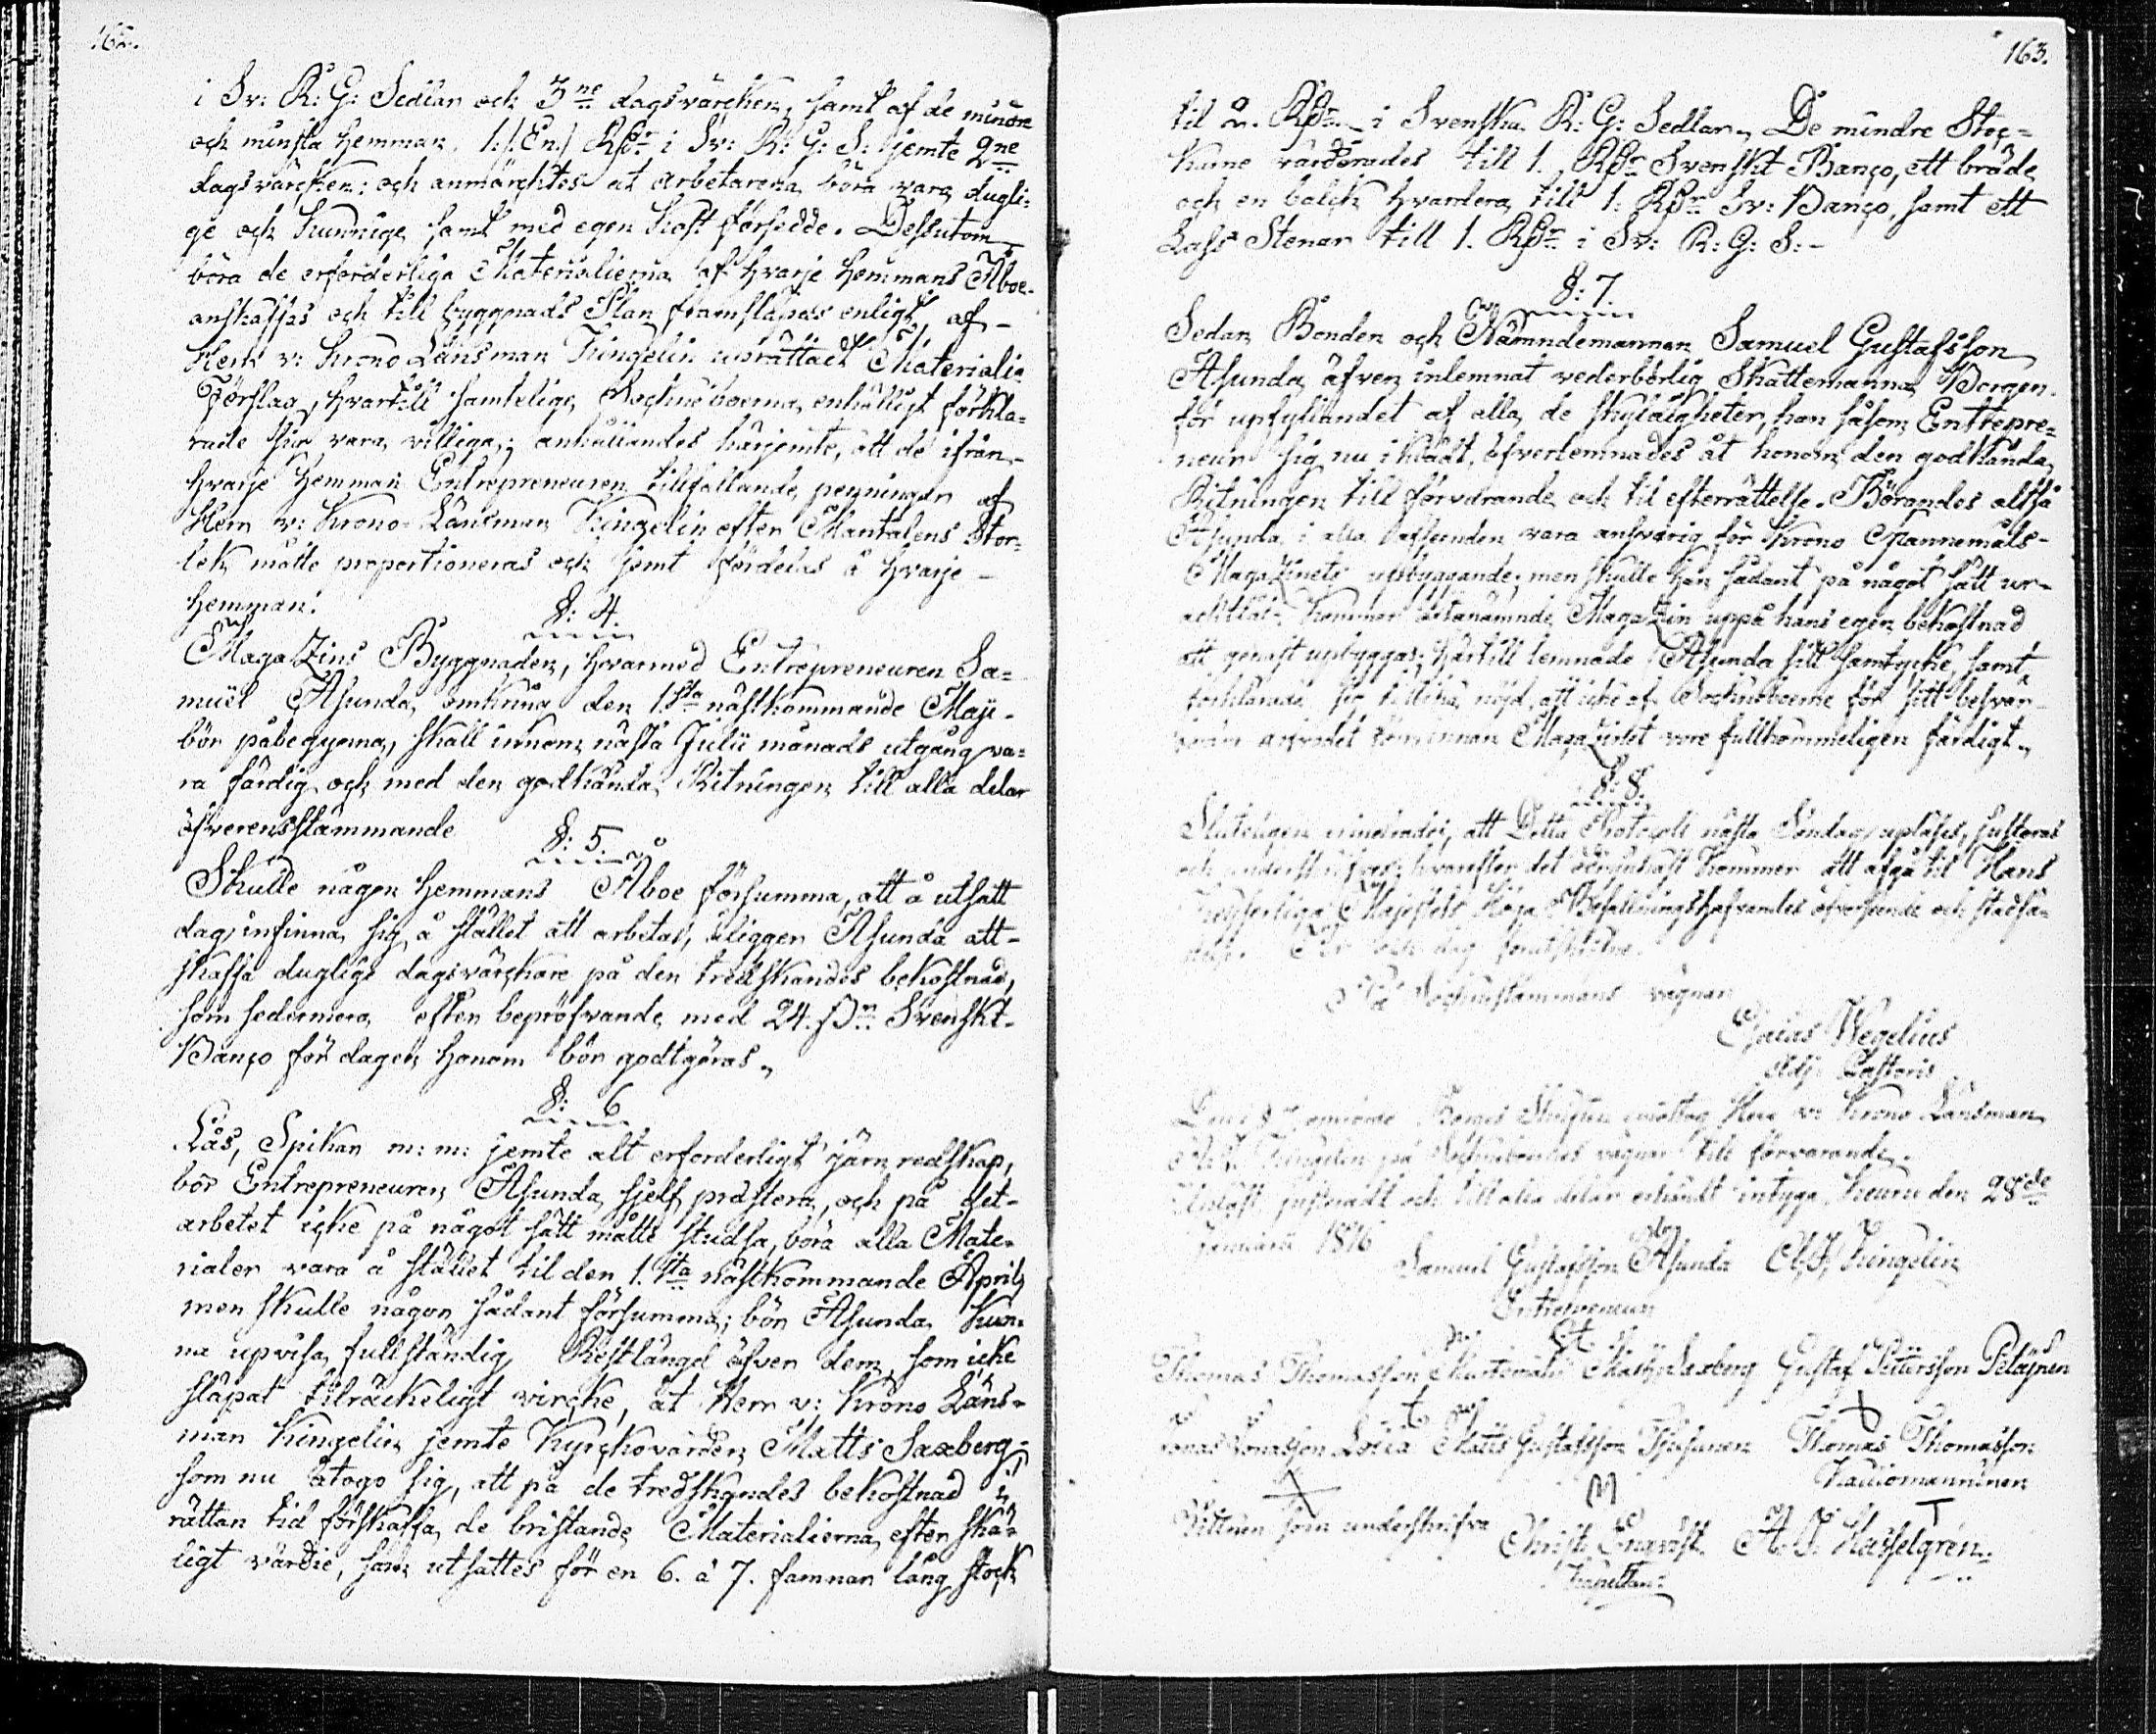 162.
i Sv: R: G: Sedlar och 3ne dagsvärcken, samt af de mindre
och minsta hemman, 1./:En:/ RDr i Sv: R: G: S: jemte 2ne
dagsvärcken: och anmärcktes at arbetarena böra vara dugli-
ge och kunnige samt med egen kost försedde. Dessutom
böra de erforderliga Materialierna af hvarje hemmans Åboe
anskaffas och till byggnads Plan framsläpas enligt af -
Herr v: Krono Länsman Kingelin uprättadt Materialie
Förslag, hvartill samtelige Sockneboerna enhälligt förkla-
rade sig vara villige; anhållandes härjemte, att de ifrån
hvarje hemman Entrepreneuren tillfallande penningar af
Herr v: Krono-Länsman Kingelin efter Mantalens Stor-
lek måtte proportioneras och jemt fördelas å hvarje -
hemman.
§: 4.
Magatzins Byggnaden, hvarmed Entrepreneuren Sa-
muel Asunda, omkring den 1sta nästkommande Maji -
bör påbegynna, skall innom nästa Julii månads utgång va-
ra färdig och med den godkända Ritningen till alla delar
öfverensstämmande
§: 5.
Skulle någon hemmans Åboe försumma, att å utsatt
dag infinna sig å stället att arbeta, åligger Asunda att -
skaffa duglige dagsvärckare på den tredskandes bekostnad,
som sedermera efter bepröfvande med 24. ßr Svenskt -
Banco för dagen honom bör godtgöras.
§: 6
Lås, Spikar m: m: jemte alt erforderligt järn redskap,
bör Entrepreneuren Asunda sjelf præstera, och på det -
arbetet icke på något sätt måtte studsa, böra alla Mate-
rialer vara å stället til den 1.sta nästkommande April,
men skulle någon sådant försumma; bör Asunda kun-
na upvisa fullständig Restlängd öfver dem, som icke
släpat tilräckeligt vircke, åt Herr v: Krono Läns-
man Kingelin jemte Kyrckovärden Matts Saxberg;
som nu åtogo sig, att på de tredskandes bekostnad i
rättan tid förskaffa de bristande Materialierna efter skä-
ligt värdie, som utsattes för en 6. à 7. famnar lång stock
163.
til 2. RDr i Svenska R: G: Sedlar, De mindre Stoc-
karne värderades till 1. RDr Svenskt Banco, ett bräde
och en balck hvardera till 1. RDr Sv: Banco, samt ett
Lass Stenar till 1. RDr i Sv: R: G: S: -
§: 7.
Sedan Bonden och Nämndemannen Samuel Gustafsson
Asunda äfven inlemnat vederbörlig Skattemanna Borgen
för upfyllandet af alla de skyldigheter, han såsom Entrepre-
neur sig nu iklädt, öfverlemnades åt honom den godkända
Ritningen till förvarande och til efterrättelse. Börandes altså
Asunda i alla afseenden vara ansvarig för Krono Spannemåls-
Magazinets upbyggande; men skulle han sådant på något sätt ur-
aktlåta, kommer ofvannämnde Magatzin uppå hans egen bekostnad
att genast upbyggas; Härtill lemnade Asunda sitt samtycke, samt
förklarade sig tillika nöjd, att icke af Sockneboerne för sitt besvär
arfvodet förrinnan Magazinet vore fullkommeligen färdigt.
§: 8.
Sluteligen att Detta Protocoll nästa Söndag upläses, justeras
och underskrifves; hvarefter det kommer att afgå til Hans
Kejserliga Majestets Höga Befallningshafvandes öfverseende och stadfä-
stelse. År och dag förutskrifne.
På Sockenstämmans vägnar
Gaius Wegelius
Adj: Pastoris
Borgens Skriften emottog Herr v: Krono Länsman
Kingelin på Sockneboernas vägnar till förvarande.
Upläst, justeradt och till alla delar erkändt intyga, Keuru den 28de
Januarii 1816
Samuel Gustafsson Asunda
Kingelin
Entrepreneur
Thomas Thomasson Matts Saxberg Gustaf Pettersson Pelajnen
Jonas Jonasson Matts Gustafsson Thomas Thomasson
Kautomanninen
Vittnen som underskrifva
Christ: Enqvist A. J. Hasselgren
Kapellan: